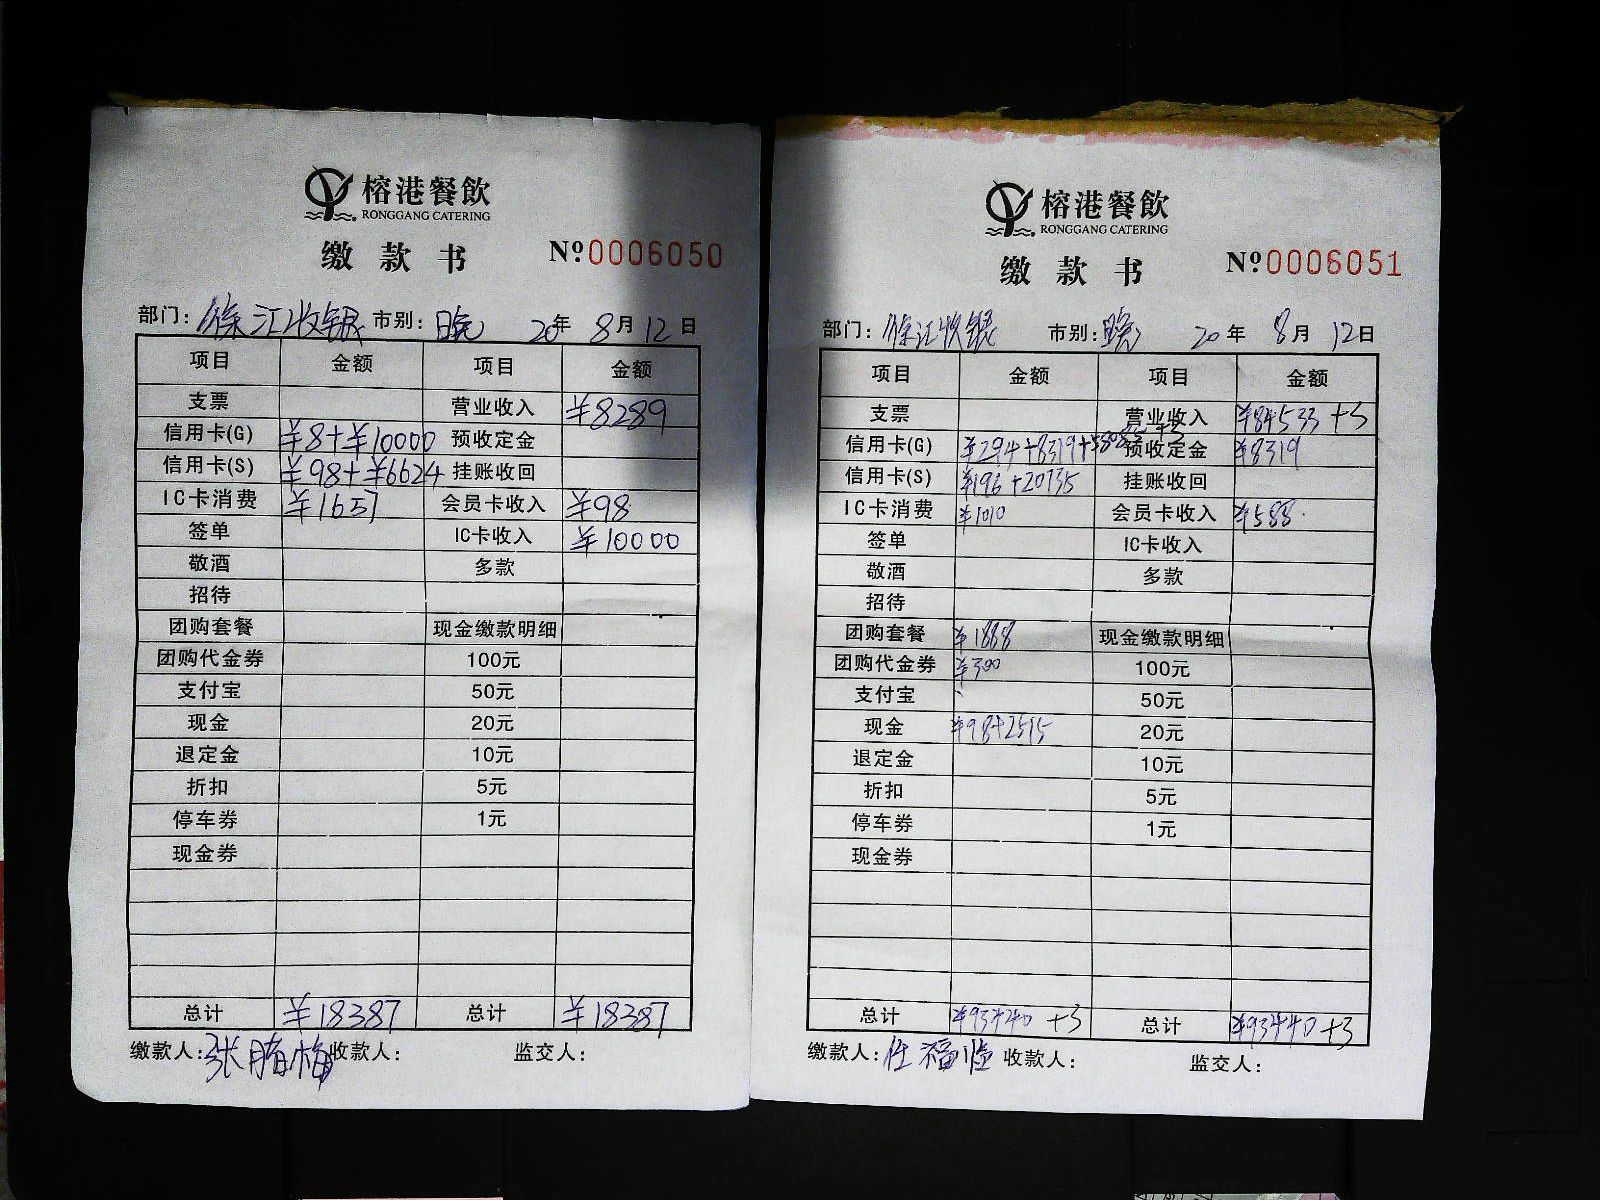 榕港餐飲
RONGGANG CATERING
缴款书 №0006050
部门: 徐汇收银 市别: 晚 20年 8月12日
项目 金额 项目 金额
支票 营业收入 ¥8289
信用卡(G) ¥8+¥10000 预收定金
信用卡(S) ¥98+¥6624 挂账收回
IC卡消费 ¥1657 会员卡收入 ¥98
签单 IC卡收入 ¥10000
敬酒 多款
招待
团购套餐 现金缴款明细
团购代金券 100元
支付宝 50元
现金 20元
退定金 10元
折扣 5元
停车券 1元
现金券
总计 ¥18387 总计 ¥18387
缴款人: 张 梅 收款人: 监交人:
榕港餐飲
RONGGANG CATERING
缴款书 №0006051
部门: 徐汇收银 市别: 晚 20年 8月 12日
项目 金额 项目 金额
支票 营业收入 ¥84533+3
信用卡(G) ¥294+8319+ 预收定金 ¥8319
信用卡(S) ¥196+20735 挂账收回
IC卡消费 ¥1010 会员卡收入 ¥588
签单 IC卡收入
敬酒 多款
招待
团购套餐 ¥1888 现金缴款明细
团购代金券 ¥300 100元
支付宝 50元
现金 ¥98+2515 20元
退定金 10元
折扣 5元
停车券 1元
现金券
总计 ¥93440+3 总计 ¥93440+3
缴款人: 任福 收款人: 监交人: